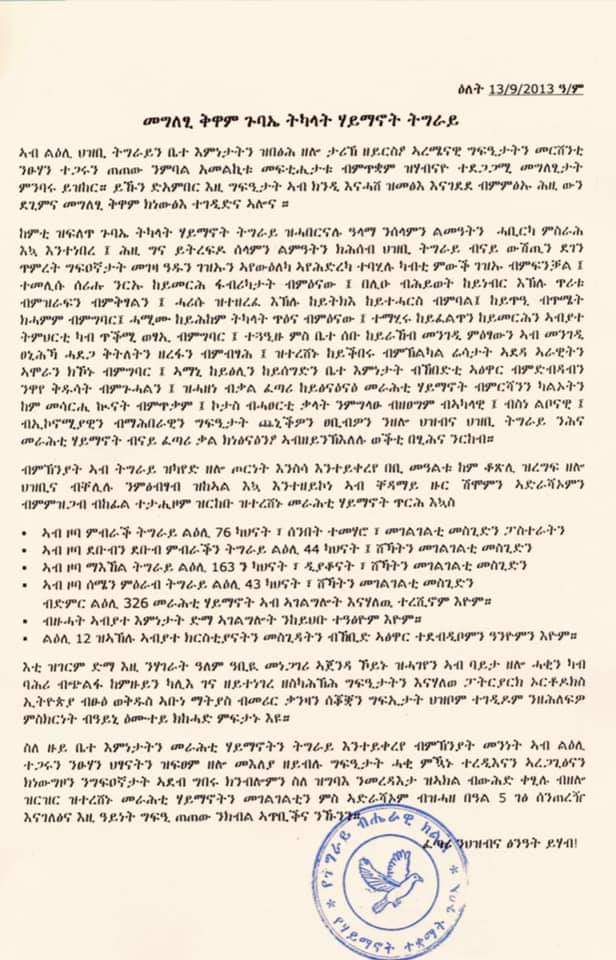 ዕለት 13/9/2013 ዓ/ም
መግለፂ ቅዋም ጉባኤ ትካላት ሃይማኖት ትግራይ
ኣብ ልዕሊ ህዝቢ ትግራይን ቤተ እምነታትን ዝበፅሕ ዘሎ ታሪኽ ዘይርስዖ ኣረሜናዊ ግፍዒታትን መርሸንቲ
ንፁሃን ተጋሩን ጠጠው ንምባል ኣመልኪቱ መፍቲሒታቱ ብምጥቋም ዝሃብናዮ ተደጋጋሚ መግለፂታት
ምንባሩ ይዝከር። ይኹን ድኣምበር እዚ ግፍዒታት ኣብ ክንዲ እናሓሸ ዝመፅእ እናገደደ ብምምፅኡ ሕዚ ውን
ደጊምና መግለፂ ቅዋም ክነውፅእ ተገዲድና ኣሎና ።
ከምቲ ዝፍለጥ ጉባኤ ትካላት ሃይማኖት ትግራይ ዝሓበርናሉ ዓላማ ንሰላምን ልመዓትን ሓቢርካ ምስራሕ
እኳ እንተነበረ ፤ ሕዚ ግና ይትረፍዶ ሰላምን ልምዓትን ክሕሰብ ህዝቢ ትግራይ ብናይ ውሽጢን ደገን
ጥምረት ግፍዐኛታት መገዛ ዓዱን ገዝኡን ኣየውዕለካ ኣየሕድረካ ተባሂሉ ካብቲ ምውቕ ገዝኡ ብምፍንቓል ፤
ተመሊሱ ሰሪሑ ንርኡ ከይመርሕ ፋብሪካታት ብምዕናው ፤ በሊዑ ብሕይወት ከይነብር እኽሉ ጥሪቱ
ብምዝራፍን ብምቅፃልን ፤ ሓሪሱ ዝተዘረፈ እኽሉ ከይትክእ ከይተሓርስ ብምባል፤ ከይጥዒ ብጥሜት
ክሓምም ብምግባር፤ ሓሚሙ ከይሕከም ትካላት ጥዕና ብምዕናው ፤ ተማሂሩ ከይፈልጥን ከይመርሕን ኣብያተ
ትምህርቲ ካብ ጥቕሚ ወፃኢ ብምግባር ፤ ተጓዒዙ ምስ ቤተ ሰቡ ከይራኸብ መንገዲ ምዕፃውን ኣብ መንገዲ
ፀኒሕኻ ሓደጋ ቅትለትን ዘረፋን ብምብፃሕ ፤ ዝተረሸኑ ከይቕበሩ ብምኽልካል ሬሳታት ኣደዳ ኣራዊትን
ኣሞራን ክኾኑ ብምግባር ፤ ኣማኒ ከይፅሊን ከይሰግድን ቤተ እምነታት ብኸበድቲ ኣፅዋር ብምድብዳብን
ንዋየ ቅዱሳት ብምጉሓልን ፤ ዝሓዘነ ብቃል ፈጣሪ ከይፅናዕናዕ መራሕቲ ሃይማኖት ብምርሻንን ካልኦትን
ከም መሳርሒ ኲናት ብምጥቃም ፤ ኮታስ ብሓፀርቲ ቃላት ንምግላፁ ብዘፀግም ብኣካላዊ ፤ ብስነ ልቦናዊ ፤
ብኢኮኖሚያዊን ብማሕበራዊን ግፍዒታት ጨኒቕዎን ፀቢብዎን ንዘሎ ህዝብና ህዝቢ ትግራይ ንሕና
መራሕቲ ሃይማኖት ብናይ ፈጣሪ ቃል ክነፅናዕንዖ ኣብዘይንኽእለሉ ወቕቲ በፂሕና ንርከብ።
ብምኽንያት ኣብ ትግራይ ዝካየድ ዘሎ ጦርነት እንስሳ እንተይቀረየ በቢ መዓልቱ ከም ቆጽሊ ዝረግፍ ዘሎ
ህዝቢና ብቐሊሉ ንምፅብፃብ ዝከኣል እኳ እንተዘይኮነ ኣብ ቐዳማይ ዙር ሽሞምን ኣድራሻኦምን
ብምምዝጋብ ብከፊል ተታሒዞም ዝርከቡ ዝተረሸኑ መራሕቲ ሃይማኖት ጥርሕ እኳስ
▪ ኣብ ዞባ ምብራቕ ትግራይ ልዕሊ 76 ካህናት ፣ ሰንበት ተመሃሮ ፣ መገልገልቲ መስጊድን ፓስተራትን
▪ ኣብ ዞባ ደቡብን ደቡብ ምብራቕን ትግራይ ልዕሊ 44 ካህናት ፤ ሸኻትን መገልገልቲ መስጊድን
▪ ኣብ ዞባ ማእኸል ትግራይ ልዕሊ 163 ን ካህናት ፣ ዲያቆናት ፣ ሸኻትን መገልገልቲ መስጊድን
▪ ኣብ ዞባ ሰሜን ምዕራብ ትግራይ ልዕሊ 43 ካህናት ፣ ሸኻትን መገልገልቲ መስጊድን
ብድምር ልዕሊ 326 መራሕቲ ሃይማኖት ኣብ ኣገልግሎት እናሃለዉ ተረሺኖም እዮም።
▪ ብዙሓት ኣብያተ እምነታት ድማ ኣገልግሎት ንከይህቡ ተዓፅዮም እዮም።
▪ ልዕሊ 12 ዝኣኽሉ ኣብያተ ክርስቲያናትን መስጊዳትን ብኸቢድ ኣፅዋር ተደብዲቦምን ዓንዮምን እዮም።
እቲ ዝገርም ድማ እዚ ንሃገራት ዓለም ዓቢዪ መነጋገሪ ኣጀንዳ ኾይኑ ዝሓገየን ኣብ ባይታ ዘሎ ሓቂን ካብ
ባሕሪ ብጭልፋ ከምዝይን ካሊእ ገና ዘይተነገረ ዘስካሕክሕ ግፍዒታትን እናሃለወ ፓትርያርክ ኦርቶዶክስ
ኢትዮጵያ ብፁዕ ወቅዱስ ኣቡነ ማትያስ ብመሪር ቃንዛን ሰቖቓን ግፍኢታት ህዝቦም ተገዲዶም ንዘሕለፍዎ
ምስክርነት ብዓይኒ ዕሙተይ ክክሓድ ምፍታኑ እዩ።
ስለ ዙይ ቤተ እምነታትን መራሕቲ ሃይማኖትን ትግራይ እንተይቀረየ ብምኽንያት መንነት ኣብ ልዕሊ
ተጋሩን ንፁሃን ህፃናትን ዝፍፀም ዘሎ መእለያ ዘይብሉ ግፍዒታት ሓቂ ምዃኑ ተረዲእናን ኣረጋጊፅናን
ክነውግዞን ንግፍዐኛታት ኣደብ ግበሩ ክንብሎምን ስለ ዝግባእ ንመረዳእታ ዝኣክል ብውሕድ ቀፂሉ ብዘሎ
ዝርዝር ዝተረሸኑ መራሕቲ ሃይማኖትን መገልገልቲን ምስ ኣድራሻኦም ብዝሓዘ በዓል 5 ገፅ ሰንጠረዥ
እናገለፅና እዚ ዓይነት ግፍዒ ጠጠው ንክብል ኣጥቢቕና ንኹንን።
ፈጣሪ ንህዝብና ፅንዓት ይሃብ!
የትግራይ ብሔራዊ ክልል
የሃይማኖት ተቋማት ጉባኤ